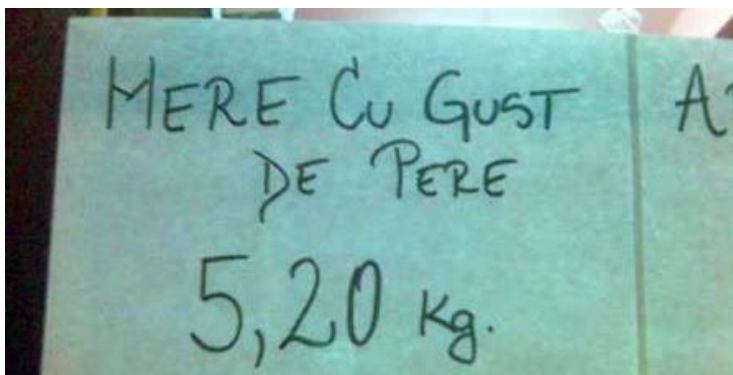 MERE CU GUST
DE PERE
5,20 Kg.